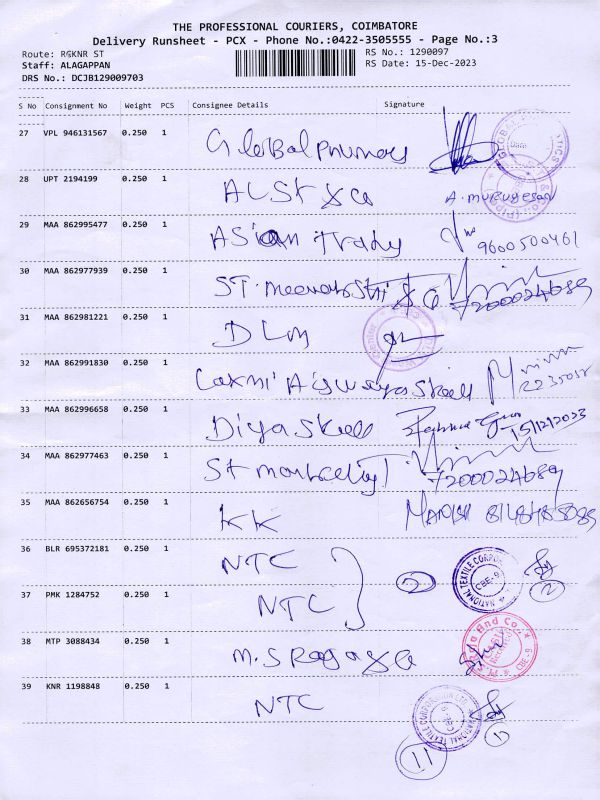 THE PROFESSIONAL COURIERS, COIMBATORE
Delivery Runsheet - PCX - Phone No.:0422-3505555 - Page No.:3
Route: RGKNR ST
RS No.: 1290097
Staff: ALAGAPPAN
RS Date: 15-Dec-2023
DRS No.: DCJB129009703
S No Consignment No Weight PCS Consignee Details Signature
27 VPL 946131567 0.250 1 Global
28 UPT 2194199 0.250 1 ALSt & Co A. Murugesan
29 MAA 862995477 0.250 1 Asian Trady 9600500461
30 MAA 862977939 0.250 1 ST. & Co 7200024689
31 MAA 862981221 0.250 1 DLM
32 MAA 862991830 0.250 1 Laxmi
33 MAA 862996658 0.250 1 Diya Steel 15/12/2023
34 MAA 862977463 0.250 1 St marketing 7200024689
35 MAA 862656754 0.250 1 KK
36 BLR 695372181 0.250 1 NTC 2 NATIONAL TEXTILE CORPORA CBE-9 2
37 PMK 1284752 0.250 1 NTC
38 MTP 3088434 0.250 1 M.S Raga & Co And Co. CBE-9
39 KNR 1198848 0.250 1 NTC NATIONAL TEXTILE CORPORATION LTD CBE-9 1
11